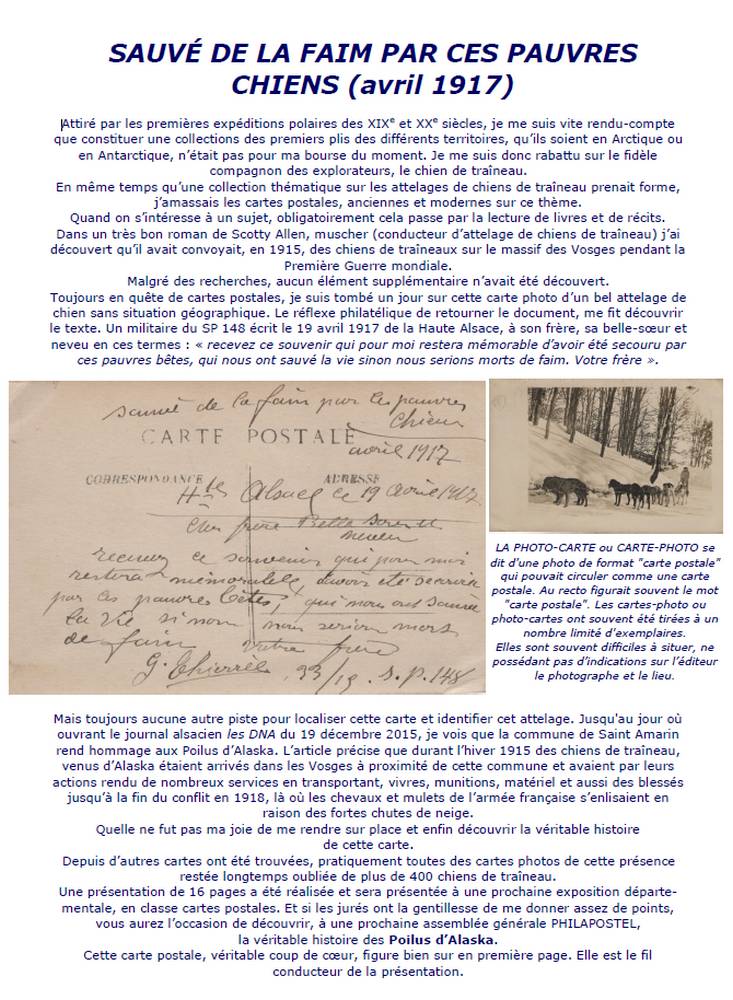 SAUVÉ DE LA FAIM PAR CES PAUVRES
CHIENS (avril 1917)
Attiré par les premières expéditions polaires des XIXe et XXe siècles, je me suis vite rendu-compte
que constituer une collections des premiers plis des différents territoires, qu’ils soient en Arctique ou
en Antarctique, n’était pas pour ma bourse du moment. Je me suis donc rabattu sur le fidèle
compagnon des explorateurs, le chien de traîneau.
En même temps qu’une collection thématique sur les attelages de chiens de traîneau prenait forme,
j’amassais les cartes postales, anciennes et modernes sur ce thème.
Quand on s’intéresse à un sujet, obligatoirement cela passe par la lecture de livres et de récits.
Dans un très bon roman de Scotty Allen, muscher (conducteur d’attelage de chiens de traîneau) j’ai
découvert qu’il avait convoyait, en 1915, des chiens de traîneaux sur le massif des Vosges pendant la
Première Guerre mondiale.
Malgré des recherches, aucun élément supplémentaire n’avait été découvert.
Toujours en quête de cartes postales, je suis tombé un jour sur cette carte photo d’un bel attelage de
chien sans situation géographique. Le réflexe philatélique de retourner le document, me fit découvrir
le texte. Un militaire du SP 148 écrit le 19 avril 1917 de la Haute Alsace, à son frère, sa belle-sœur et
neveu en ces termes : « recevez ce souvenir qui pour moi restera mémorable d’avoir été secouru par
ces pauvres bêtes, qui nous ont sauvé la vie sinon nous serions morts de faim. Votre frère ».
sauvé de la faim par ces pauvres
chiens
CARTE POSTALE
avril 1917
CORRESPONDANCE ADRESSE
Hte Alsace ce 19 avril 1917
Cher frère Belle soeur et
neveu
recevez ce souvenir qui pour moi
restera mémorable, d'avoir été secouru
par ces pauvres bêtes, qui nous ont sauvé
la vie si non nous serions morts
de faim Votre frère
G. Thierrée 23/19 S.P. 148
LA PHOTO-CARTE ou CARTE-PHOTO se
dit d’une photo de format "carte postale"
qui pouvait circuler comme une carte
postale. Au recto figurait souvent le mot
"carte postale". Les cartes-photo ou
photo-cartes ont souvent été tirées à un
nombre limité d’exemplaires.
Elles sont souvent difficiles à situer, ne
possédant pas d’indications sur l’éditeur
le photographe et le lieu.
Mais toujours aucune autre piste pour localiser cette carte et identifier cet attelage. Jusqu'au jour où
ouvrant le journal alsacien les DNA du 19 décembre 2015, je vois que la commune de Saint Amarin
rend hommage aux Poilus d’Alaska. L’article précise que durant l’hiver 1915 des chiens de traîneau,
venus d’Alaska étaient arrivés dans les Vosges à proximité de cette commune et avaient par leurs
actions rendu de nombreux services en transportant, vivres, munitions, matériel et aussi des blessés
jusqu’à la fin du conflit en 1918, là où les chevaux et mulets de l’armée française s’enlisaient en
raison des fortes chutes de neige.
Quelle ne fut pas ma joie de me rendre sur place et enfin découvrir la véritable histoire
de cette carte.
Depuis d’autres cartes ont été trouvées, pratiquement toutes des cartes photos de cette présence
restée longtemps oubliée de plus de 400 chiens de traîneau.
Une présentation de 16 pages a été réalisée et sera présentée à une prochaine exposition départe-
mentale, en classe cartes postales. Et si les jurés ont la gentillesse de me donner assez de points,
vous aurez l’occasion de découvrir, à une prochaine assemblée générale PHILAPOSTEL,
la véritable histoire des Poilus d’Alaska.
Cette carte postale, véritable coup de cœur, figure bien sur en première page. Elle est le fil
conducteur de la présentation.